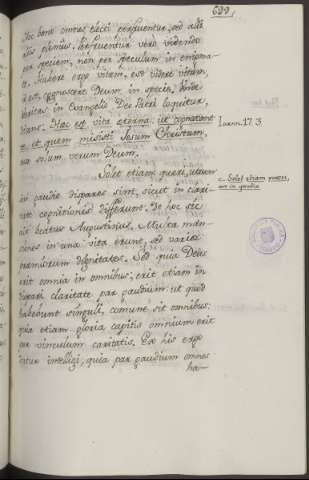 699.
hoc bono omnes electi perfruentur, sed alii
aliis plenius. Perfruentur vero videndo
per speciem, non per speculum in enigma-
te. Habere ergo vitam, est videre vitam,
id est, cognoscere Deum in specie, unde
veritas in Evangelio Deo Patri loquitur,
dicens: Haec est vita aeterna, ut cognoscant
te et quem misisti Jesum Christum,
Joann. 17. 3.
te solum verum Deum.
Solet etiam quaeri, utrum
c. Solet etiam quaeri,
utr. in gaudio
in gaudio dispares sint, sicut in clari-
tate cognitionis differunt. De hoc scri-
bit beatus Augustinus. Multae man-
siones in una vita erunt, sed variae
praemiorum dignitates. Sed quia Deus
erit omnia in omnibus; erit etiam in
dispari claritate par gaudium ut quod
habebunt singuli, comune sit omnibus:
quia etiam gloria capitis omnium erit
per vinculum caritatis. Ex his ergo
datur intelligi, quia par gaudium omnes
ha-